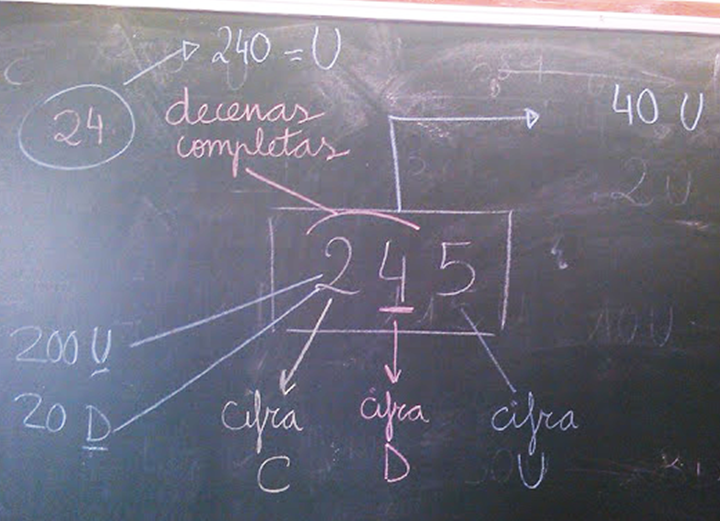 240 = U
24
decenas
completas
40 U
2U
245
200 U
20 D
10U
cifra
C
cifra
D
cifra
U